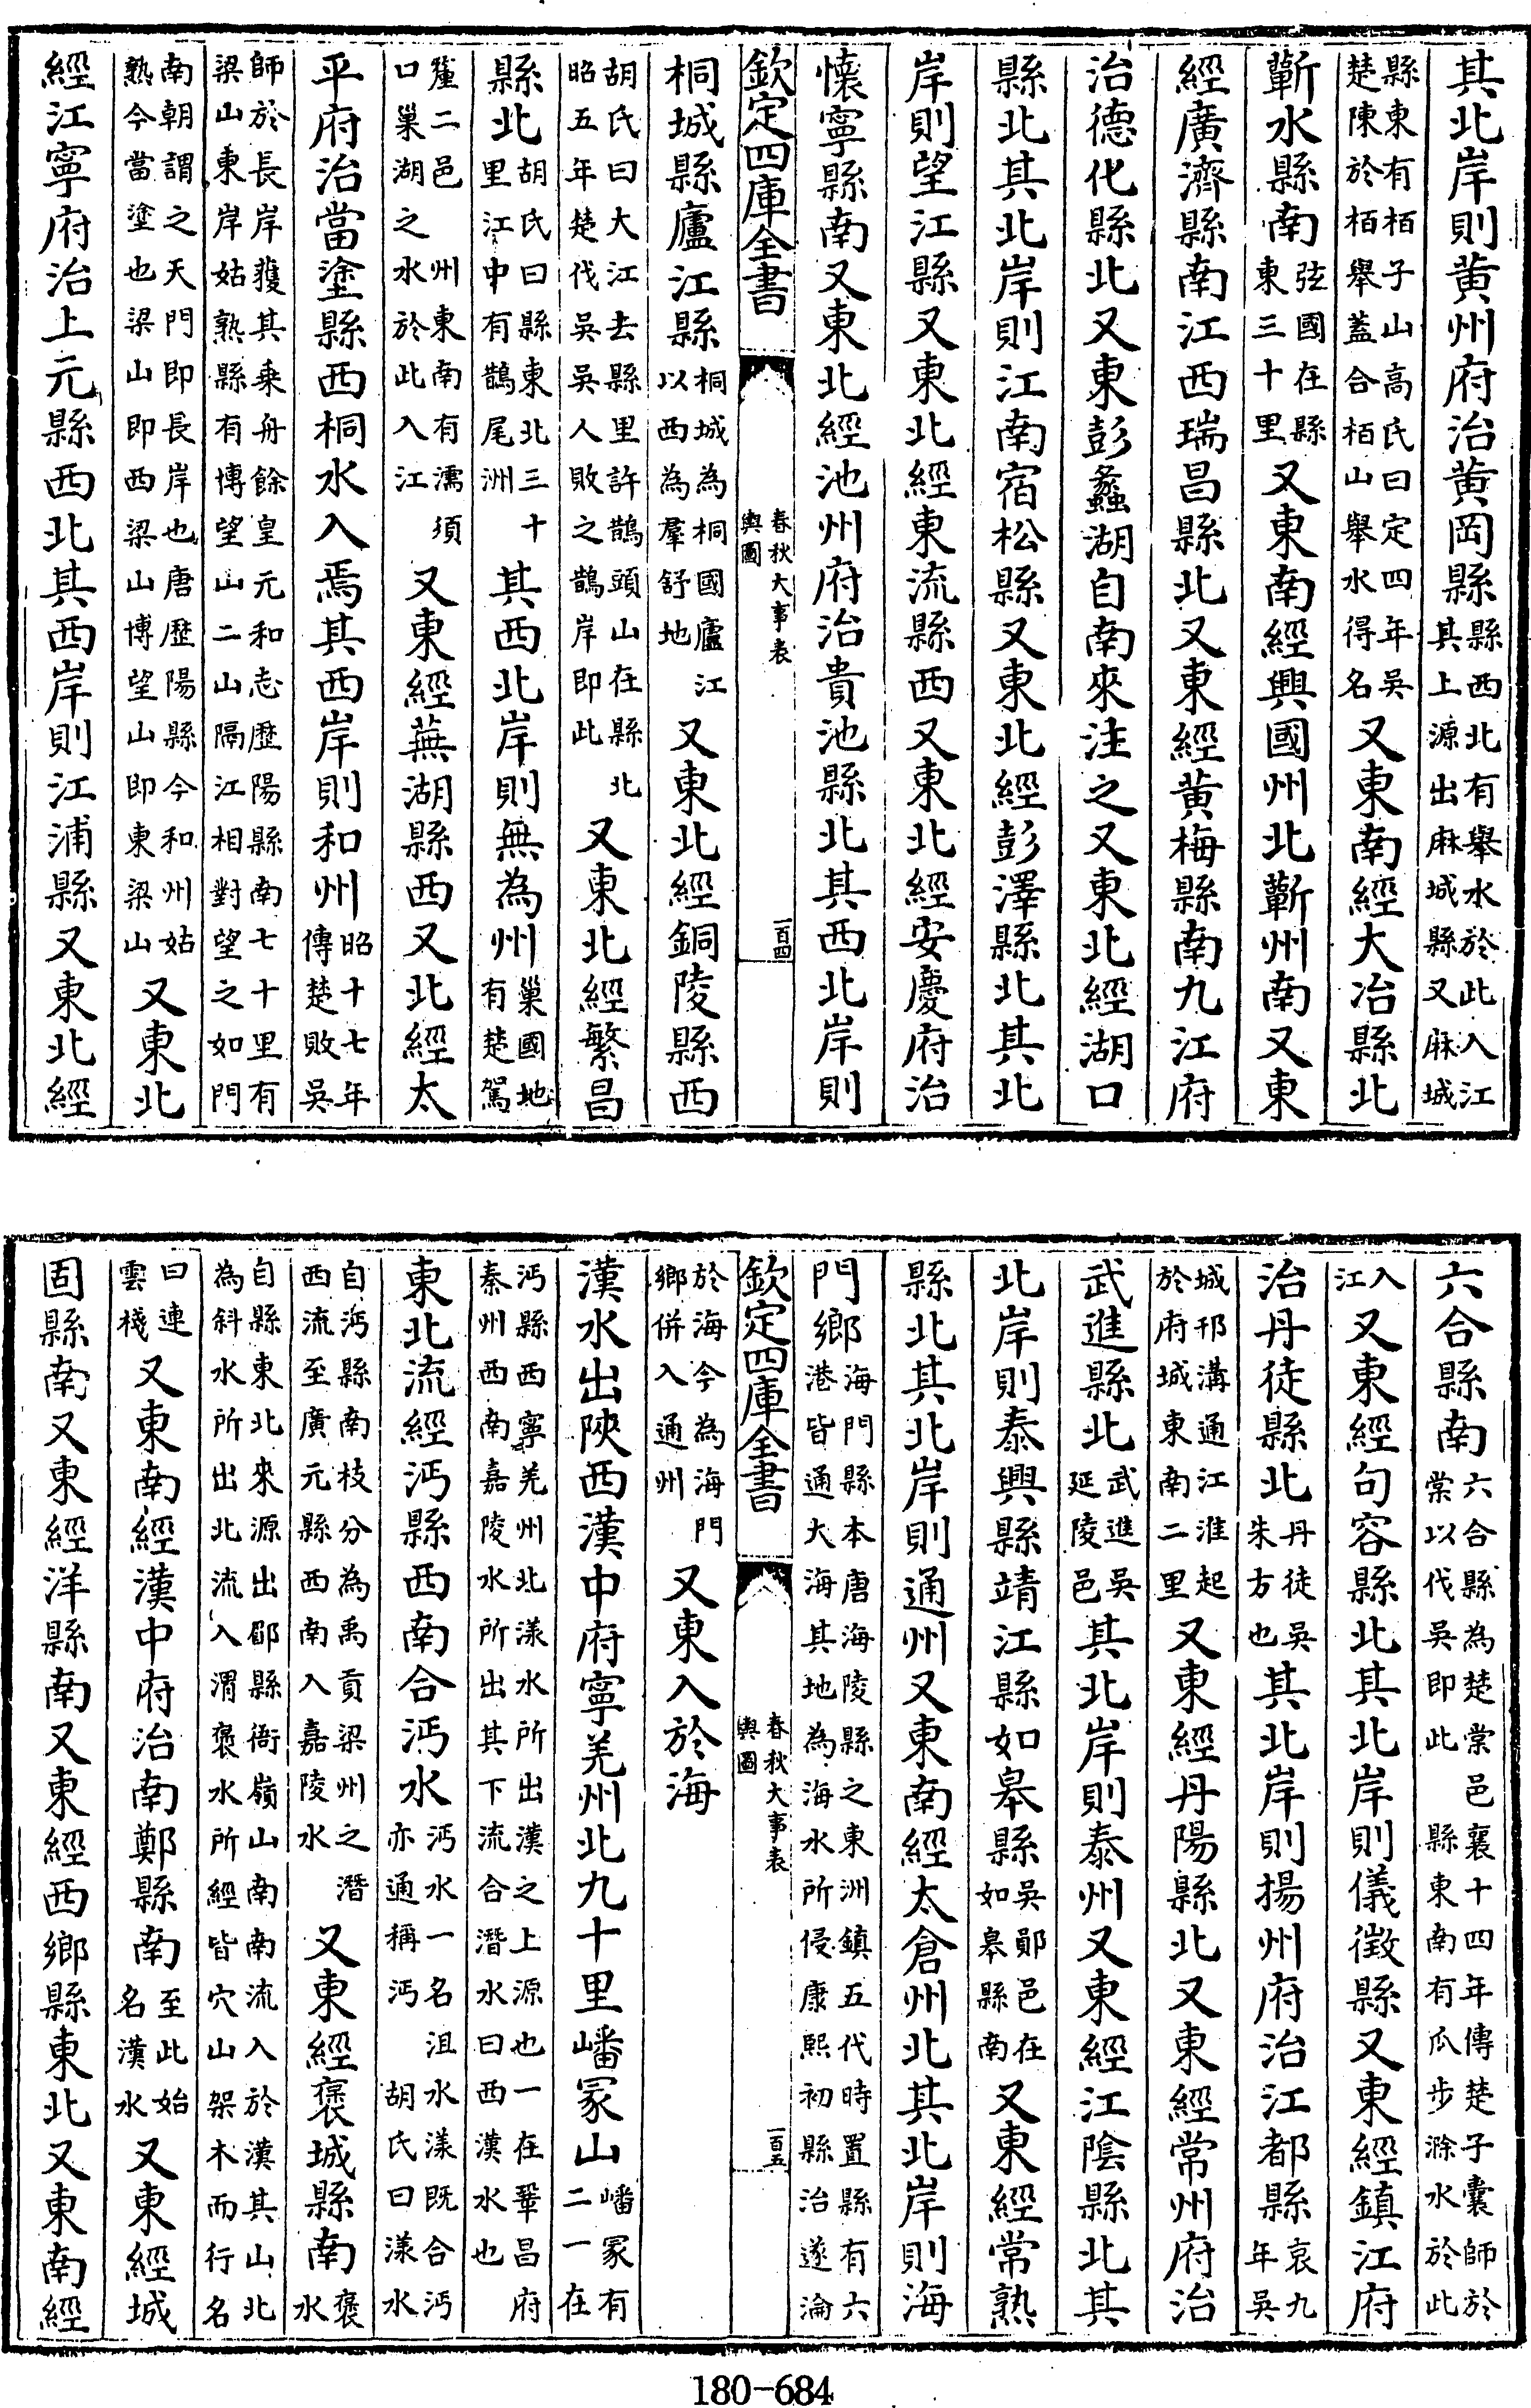 其北岸則黄州府治黄岡縣縣西北有舉水於此入江其上源出麻城縣又麻城
縣東有栢子山高氏曰定四年吳楚陳於栢舉蓋合栢山舉水得名又東南經大冶縣北
蘄水縣南弦國在縣東三十里又東南經興國州北蘄州南又東
經廣濟縣南江西瑞昌縣北又東經黄梅縣南九江府
治德化縣北又東彭蠡湖自南來注之又東北經湖口
縣北其北岸則江南宿松縣又東北經彭澤縣北其北
岸則望江縣又東北經東流縣西又東北經安慶府治
懷寧縣南又東北經池州府治貴池縣北其西北岸則
欽定四庫全書 春秋大事表輿圖 一百四
桐城縣廬江縣桐城為桐國廬江以西為羣舒地又東北經銅陵縣西
胡氏曰大江去縣里許鵲頭山在縣北昭五年楚伐吳吳人敗之鵲岸即此又東北經繁昌
縣北胡氏曰縣東北三十里江中有鵲尾洲其西北岸則無為州巢國地有楚駕
釐二邑 州東南有濡須口巢湖之水於此入江又東經蕪湖縣西又北經太
平府治當塗縣西桐水入焉其西岸則和州昭十七年傳楚敗吳
師於長岸獲其乗舟餘皇元和志歷陽縣南七十里有梁山東岸姑熟縣有博望山二山隔江相對望之如門
南朝謂之天門即長岸也唐歷陽縣今和州姑熟今當塗也梁山即西梁山博望山即東梁山又東北
經江寧府治上元縣西北其西岸則江浦縣又東北經
六合縣南六合縣為楚棠邑襄十四年傳楚子囊師於棠以伐吳即此 縣東南有瓜步滁水於此
入江又東經句容縣北其北岸則儀徴縣又東經鎮江府
治丹徒縣北丹徒吳朱方也其北岸則揚州府治江都縣哀九年吳
城邗溝通江淮起於府城東南二里又東經丹陽縣北又東經常州府治
武進縣北武進吳延陵邑其北岸則泰州又東經江陰縣北其
北岸則泰興縣靖江縣如皋縣吳鄖邑在如皋縣南又東經常熟
縣北其北岸則通州又東南經太倉州北其北岸則海
門鄉海門縣本唐海陵縣之東洲鎮五代時置縣有六港皆通大海其地為海水所侵康熙初縣治遂淪
於海今為海門鄉併入通州又東入於海
欽定四庫全書 春秋大事表輿圖 一百五
漢水出陝西漢中府寧羌州北九十里嶓冢山嶓冢有二一在
沔縣西寧羌州北漾水所出漢之上源也一在鞏昌府秦州西南嘉陵水所出其下流合潛水曰西漢水也
東北流經沔縣西南合沔水沔水一名沮水漾既合沔亦通稱沔 胡氏曰漾水
自沔縣南枝分為禹貢梁州之潛西流至廣元縣西南入嘉陵水又東經褒城縣南褒水
自縣東北來源出郿縣衙嶺山南南流入於漢其山北為斜水所出北流入渭褒水所經皆穴山架木而行名
曰連雲棧又東南經漢中府治南鄭縣南至此始名漢水又東經城
固縣南又東經洋縣南又東經西鄉縣東北又東南經
180-684